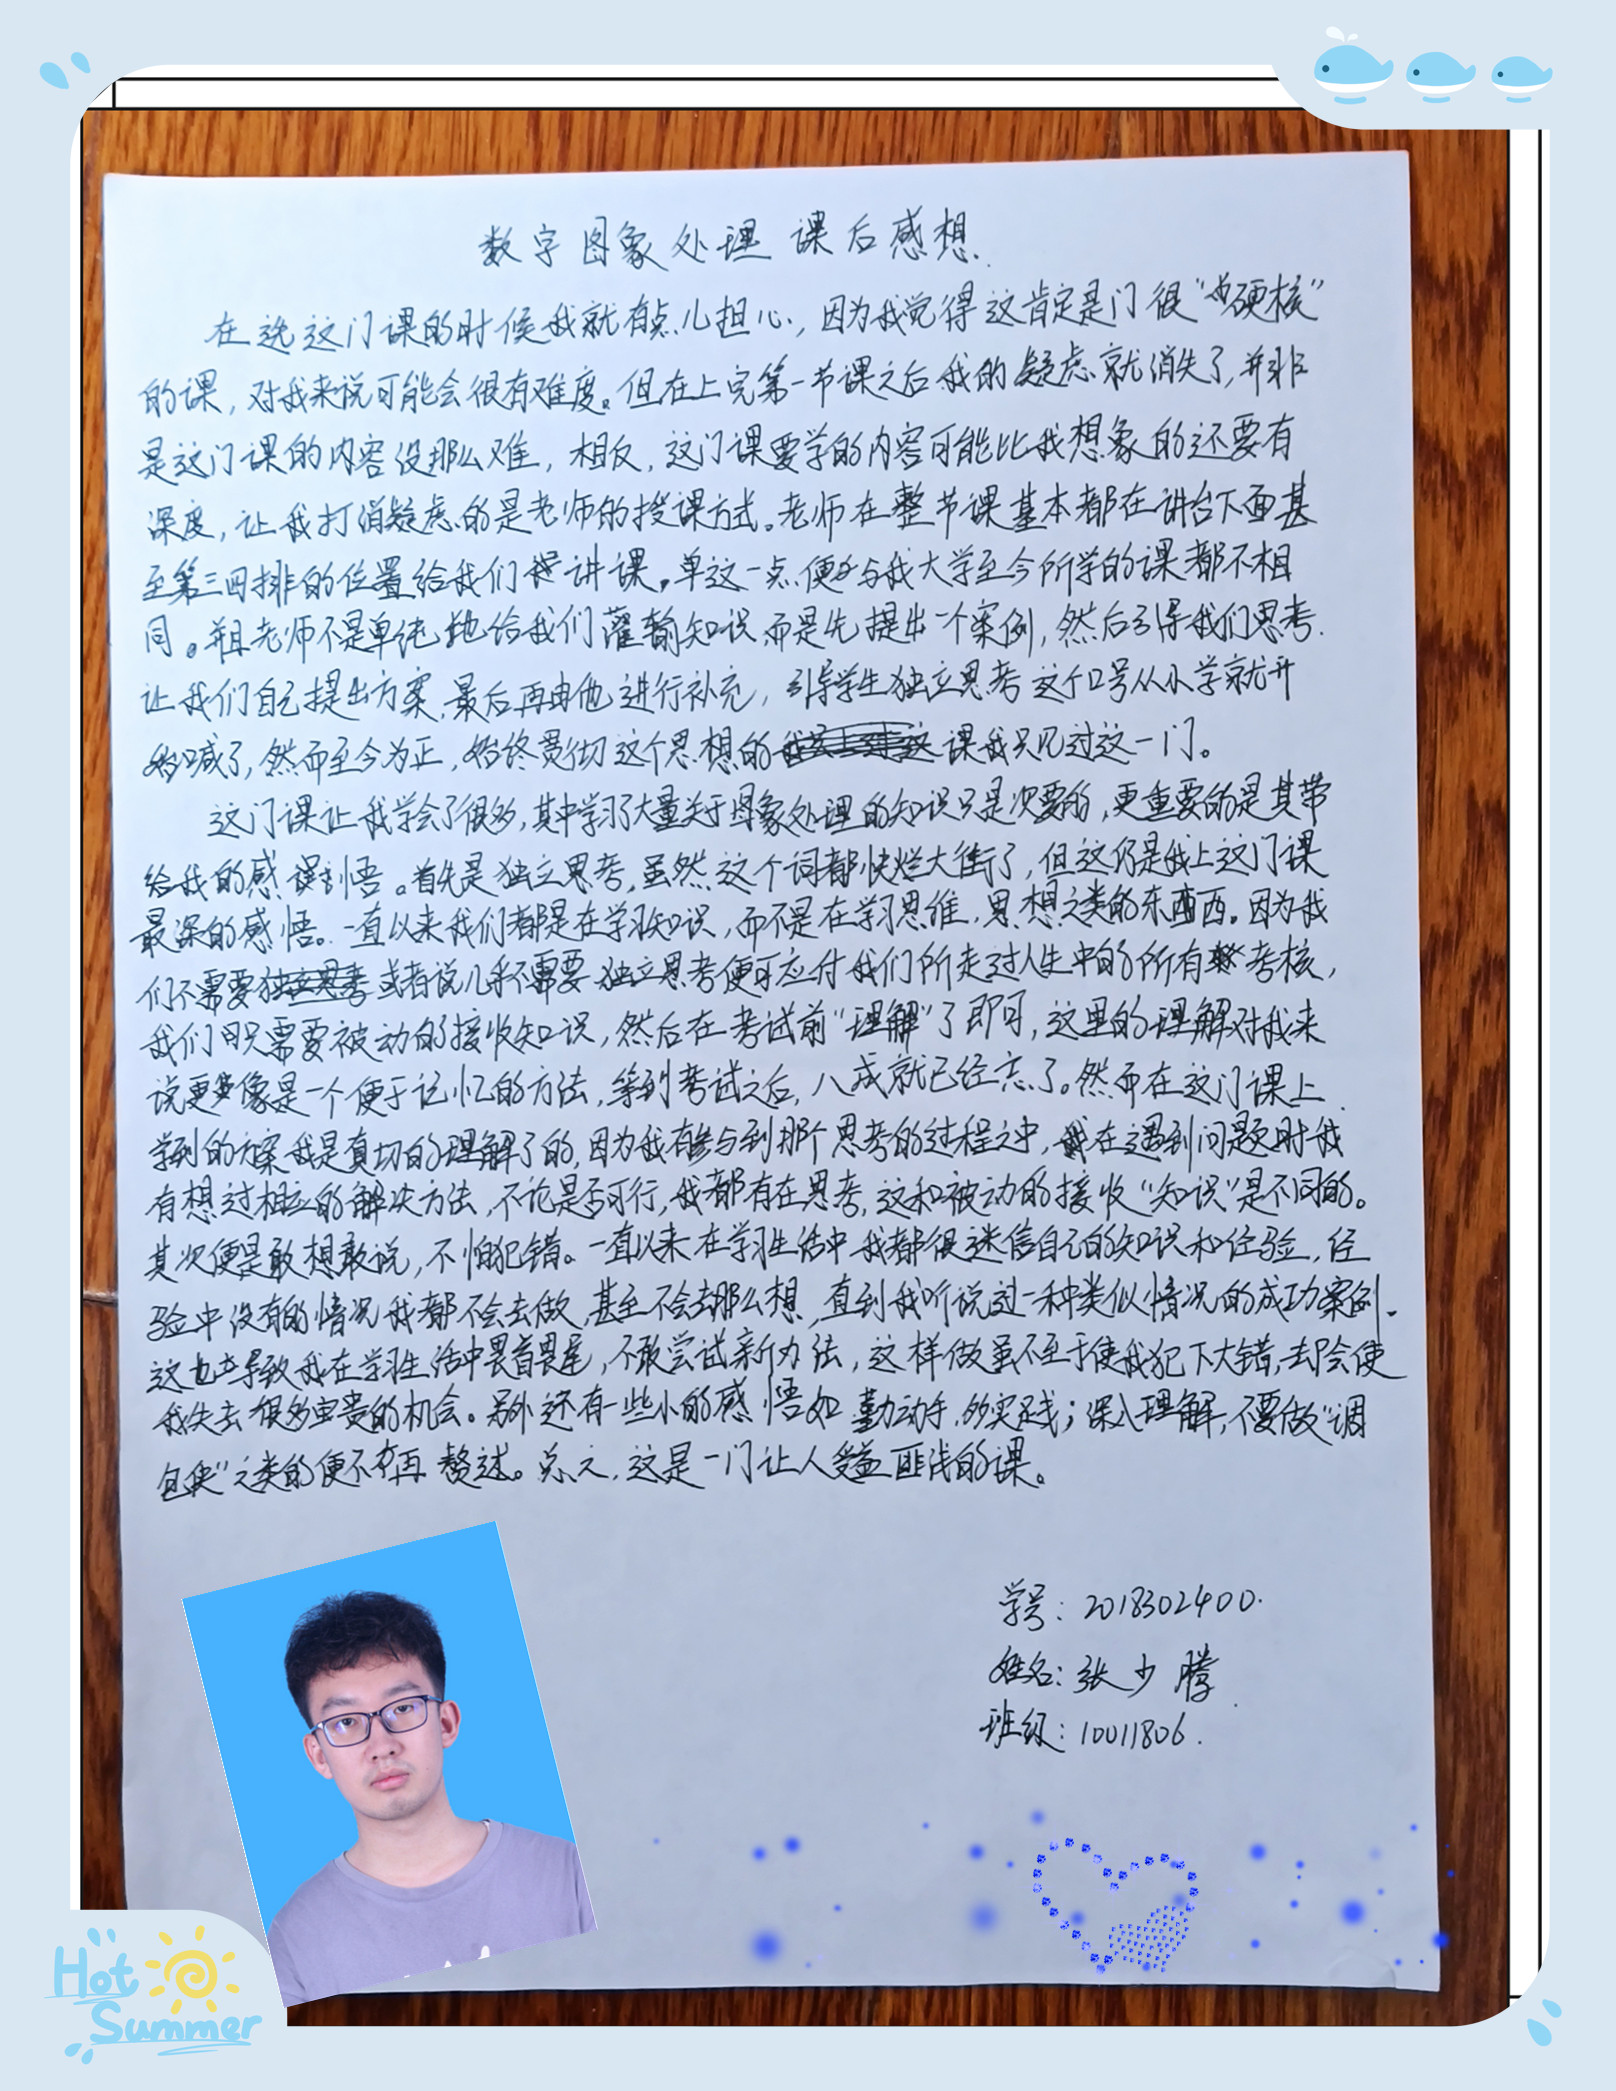 数字图象处理 课后感想.
在选这门课的时候我就有点儿担心，因为我觉得这肯定是门很“硬核”
的课，对我来说可能会很有难度。但在上完第一节课之后我的疑虑就消失了，并非
是这门课的内容没那么难，相反，这门课要学的内容可能比我想象的还要有
深度，让我打消疑虑的是老师的授课方式。老师在整节课基本都在讲台下面甚
至第三四排的位置给我们讲课，单这一点便与我大学至今所学的课都不相
同。并且老师不是单纯地给我们灌输知识，而是先提出一个案例，然后引导我们思考.
让我们自己提出方案，最后再由他进行补充，引导学生独立思考这个口号从小学就开
始喊了，然而至今为止，始终贯彻这个思想的课我只见过这一门。
这门课让我学会了很多，其中学习了大量关于图象处理的知识只是次要的，更重要的是其带
给我的感悟。首先是独立思考，虽然这个词都快烂大街了，但这仍是我上这门课
最深的感悟。一直以来我们都是在学习知识，而不是在学习思维，思想之类的东西。因为我
们不需要独立思考或者说几乎不需要独立思考便可应付我们所走过人生中的所有考核，
我们只需要被动的接收知识，然后在考试前“理解”了即可，这里的理解对我来
说更像是一个便于记忆的方法，等到考试之后，八成就已经忘了。然而在这门课上
学到的方案我是真切的理解了的，因为我有参与到那个思考的过程之中，在遇到问题时我
有想过相应的解决方法，不论是否可行，我都有在思考，这和被动的接收“知识”是不同的。
其次便是敢想敢说，不怕犯错。一直以来在学习生活中我都很迷信自己的知识和经验，经
验中没有的情况我都不会去做，甚至不会去那么想，直到我听说过一种类似情况的成功案例。
这也导致我在学习生活中畏首畏尾，不敢尝试新办法，这样做虽不至于使我犯下大错，却会使
我失去很多宝贵的机会。另外还有一些小的感悟如勤动手，多实践；深入理解，不要做“调
包侠”之类的便不再赘述。总之，这是一门让人受益匪浅的课。
学号：2018302400.
姓名：张少腾
班级：10011806.
Hot
Summer